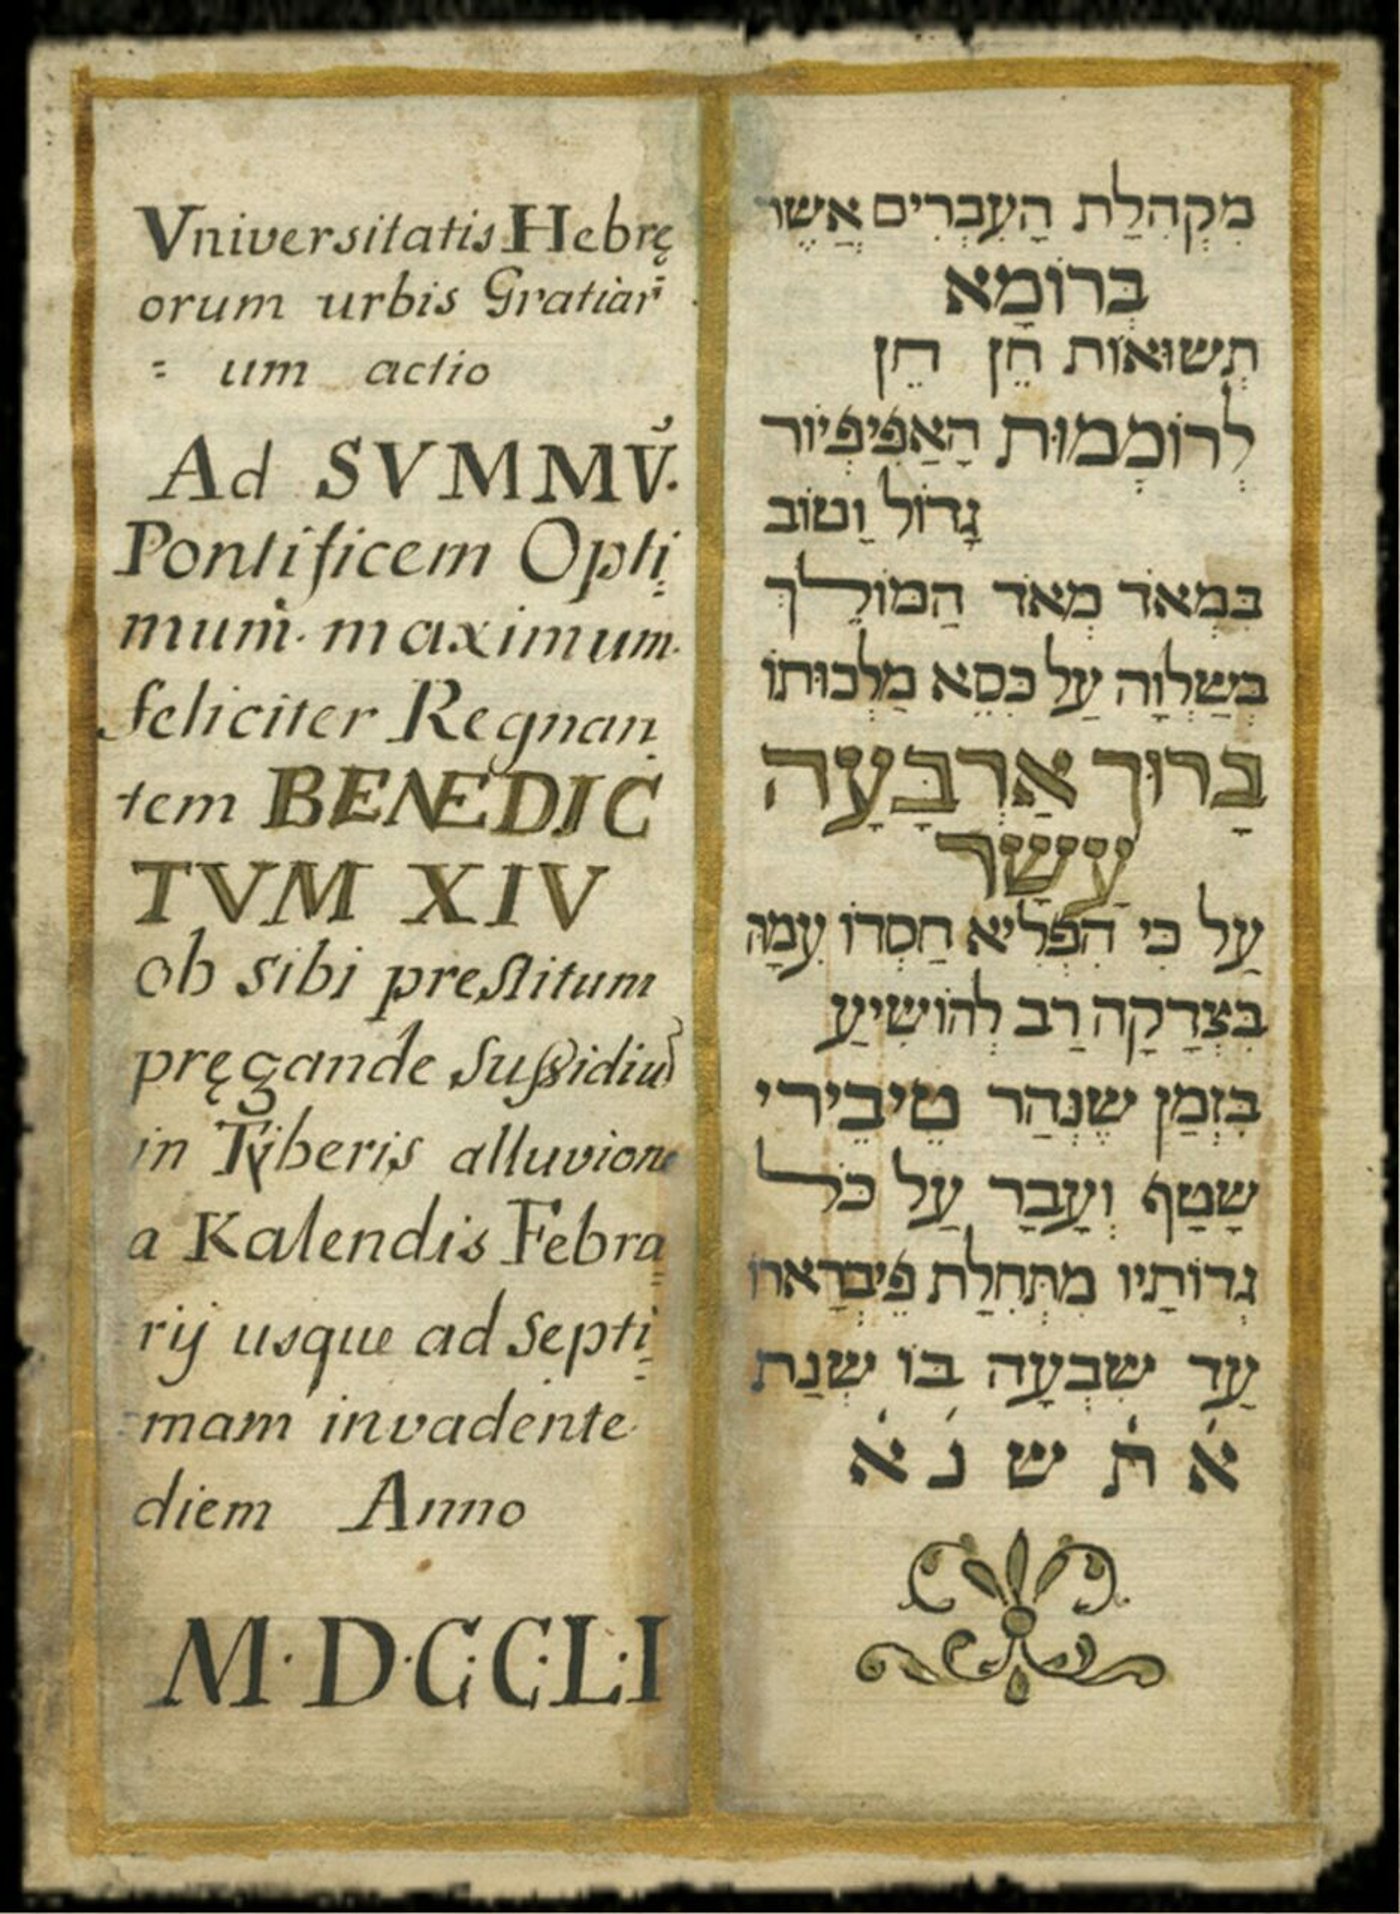 Vniversitatis Hebrę
orum urbis Gratiar
= um actio
Ad SVMMV̆.
Pontificem Opti
mum. maximum.
feliciter Regnan
tem BENEDIC
TVM XIV
ob sibi prestitum
pręgande Sussidiũ
in Tyberis alluvione
a Kalendis Febra
rij usque ad septi
mam invadente
diem Anno
M·D·C·C·L·I
מִקְהִלַת הָעִבְרִים אֲשֶׁר
בְּרוֹמָא
תְּשׁוּאוֹת חֵן חֵן
לְרוֹמְמוּת הָאַפִּיפְיוֹר
גָּדוֹל וַטוֹב
בִּמְאֹד מְאֹד הַמּוֹלֵךְ
בְּשַׁלְוָה עַל כִּסֵא מַלְכוּתוֹ
בָּרוּךְ אַרְבָּעָה
עָשָׂר
עַל כִּי הִפְלִיא חַסְדּוֹ עִמָהּ
בִּצְדָקָה רַב לְהוֹשִׁיעַ
בִּזְמַן שֶׁנְּהַר טֵיבֵירִי
שָׁטַף וְעָבַר עַל כֹּל
גְּדוֹתָיו מִתְּחִלַת פֵיבְרָארוֹ
עַד שִׁבְעָה בּוֹ שְׁנַת
א̇ ת̇ ש נ̇ א̇